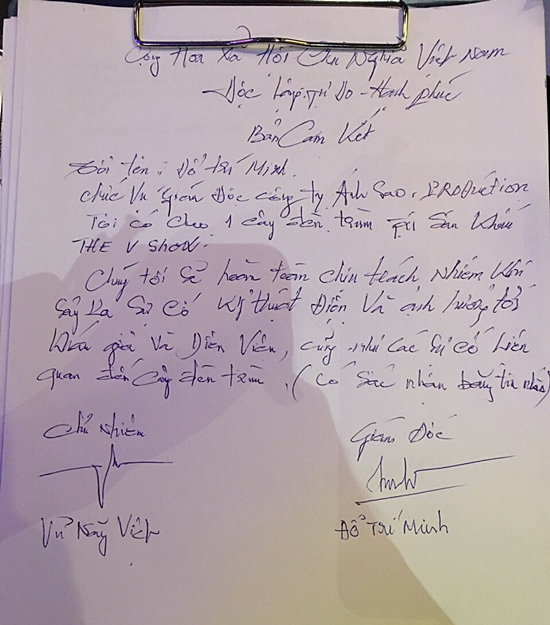 Cộng Hòa Xã Hội Chủ Nghĩa Việt Nam
Độc lập. Tự Do - Hạnh phúc
Bản Cam Kết
Tôi tên : Đỗ Trí Minh.
Chức Vụ giám Đốc công ty Ánh Sao. PRODUCTION
Tôi có cheo 1 cây đèn trùm tại Sân Khấu
THE V SHOW.
Chúng tôi sẽ hoàn toàn chịu trách nhiệm khi
Sảy Ra Sự cố kỹ thuật Điện Và ảnh hưởng tới
khán giả Và Diễn Viên, cũng như các sự cố liên
quan đến cây đèn trùm. (có sác nhận bằng tin nhắn)
Chủ Nhiệm
Giám Đốc
Vũ Viết
Đỗ Trí Minh